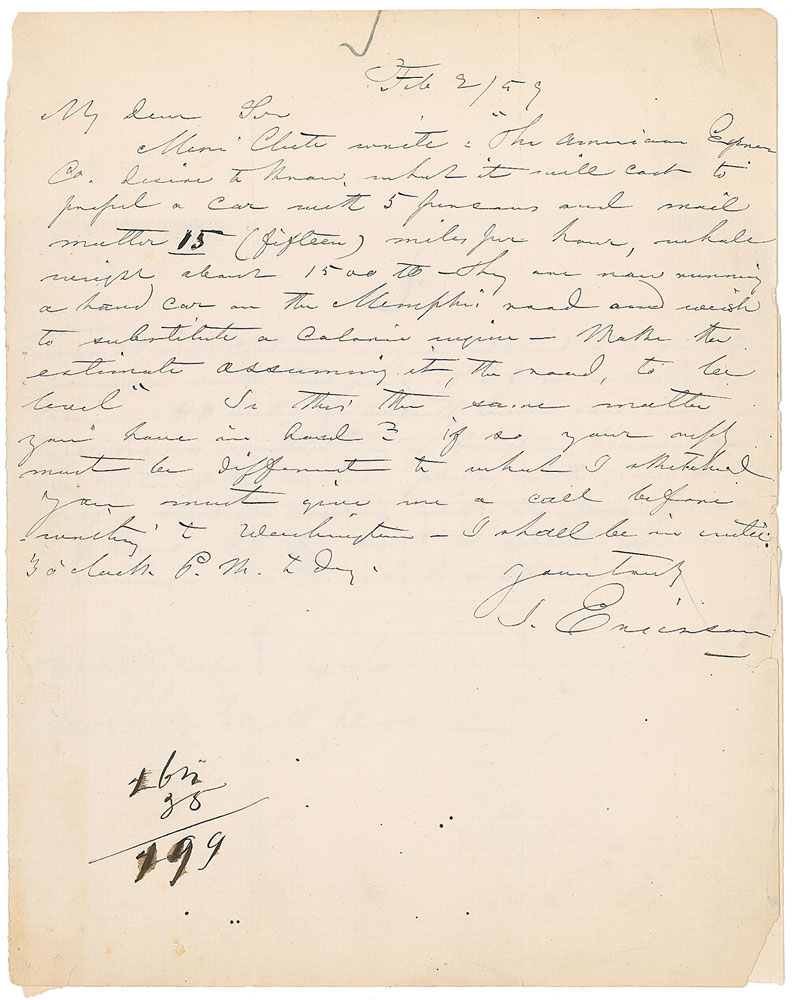 Feb 2/59
My dear Sir
write: "The American Express
Co. desire to know, what it will cost to
propel a car with 5 persons and mail
matter 15 (fifteen) miles per hour, whole
weight about 1500 lb – They are now running
a hand car on the Memphis road and wish
to substitute a Caloric engine – Make the
estimate assuming it, the road, to be
level" Is this the same matter
you have in hand? if so your reply
must be different to what I sketched
you must give me a call before
writing to Washington – I shall be in until
3 o'clock P. M. to day.
yours truly
J. Ericsson
35
199